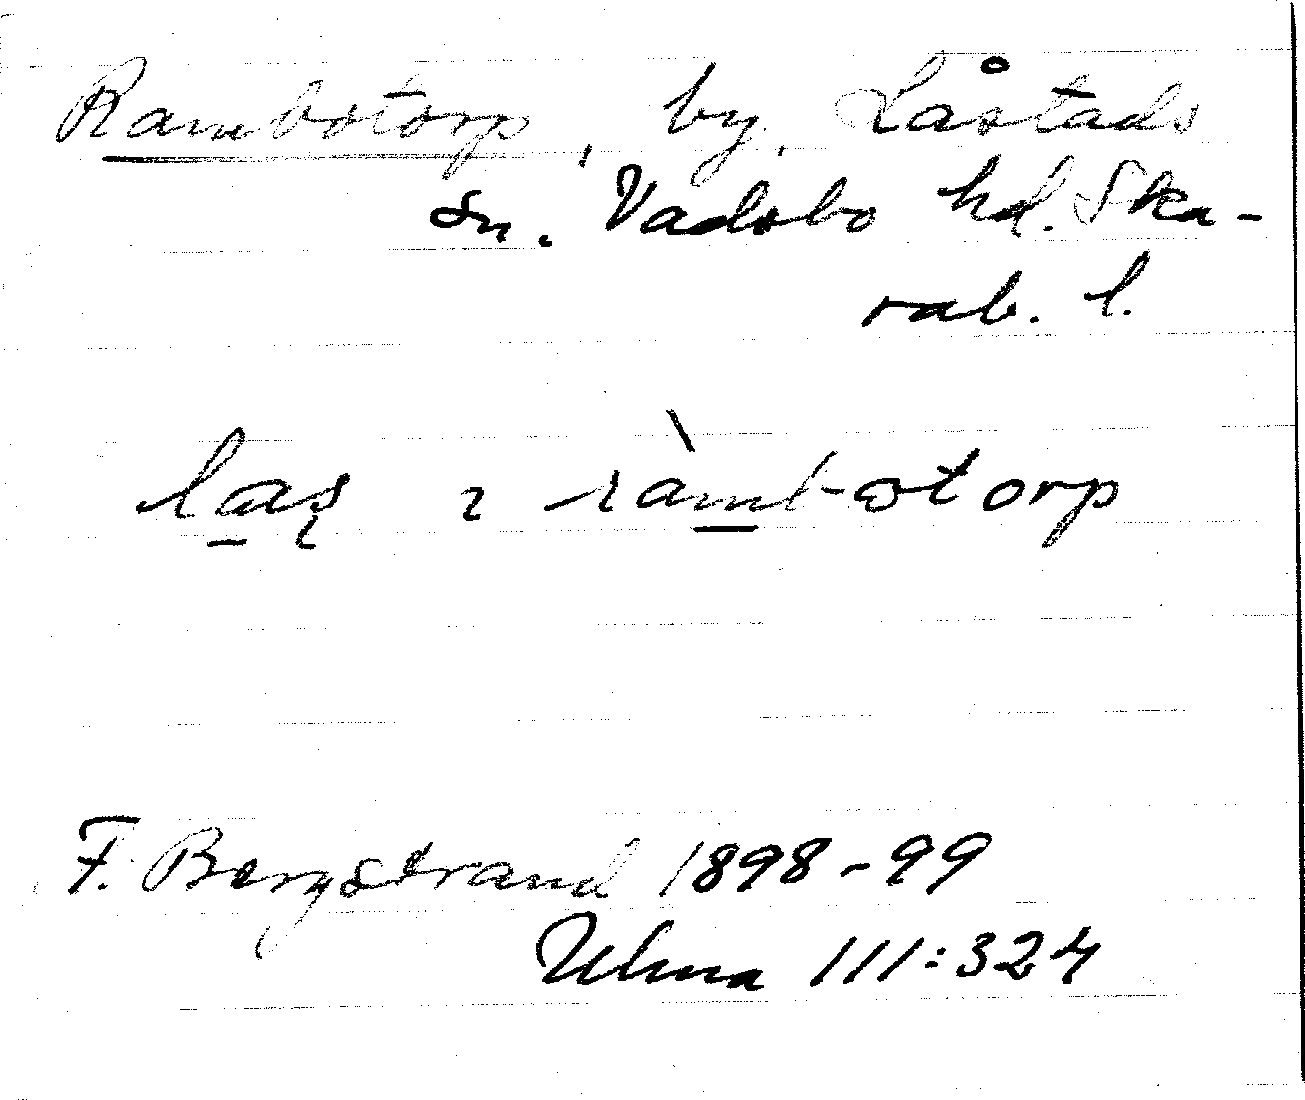 Rambotorp, by, Låstads
sn. Vadsbo hd. Ska-
rab. l.
las ı ràmbotorp
F. Bergstrand 1898-99
Ulma 111:324